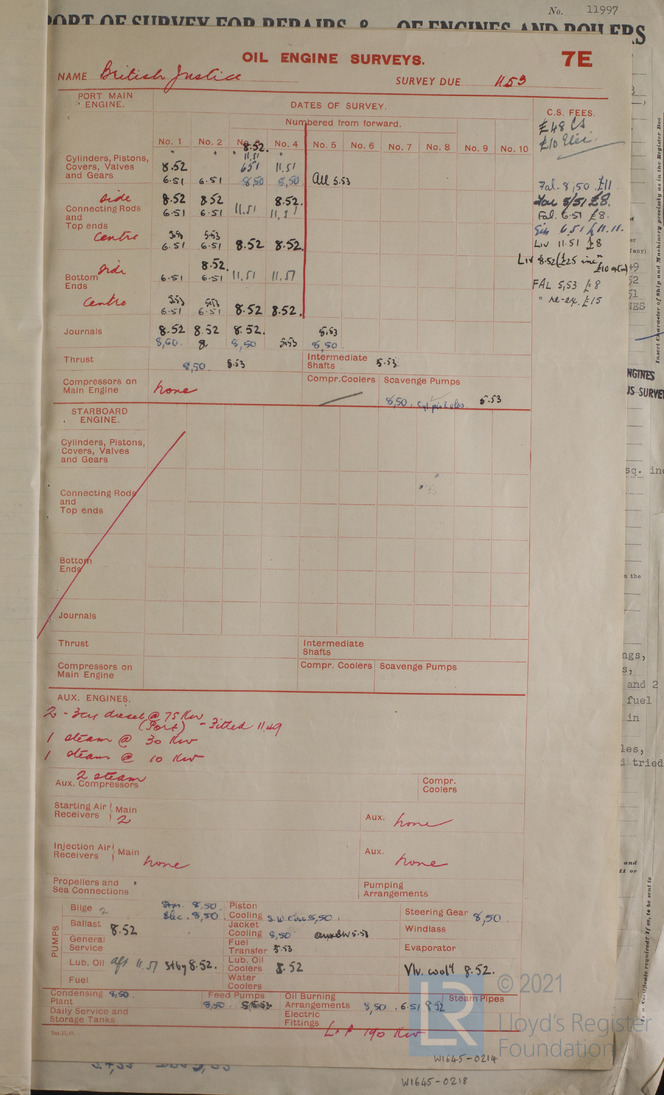 No. 11997
PORT OF SURVEY FOR REPAIRS, & OF ENGINES AND BOILERS
OIL ENGINE SURVEYS.
7E
NAME British Justice
SURVEY DUE 1153
PORT MAIN ENGINE.
DATES OF SURVEY.
C.S. FEES.
Numbered from forward.
£48 CS
£10 Elec.
No. 1 No. 2 No. 3 No. 4 No. 5 No. 6 No. 7 No. 8 No. 9 No. 10
8.52
11.51
Cylinders, Pistons, Covers, Valves and Gears
8.52 651 11.51
6.51 6.51 8,50 8,50 All 5.53
Fal. 8,50 £11
5/51 £8.
Fal. 6.51 £8.
6.51 £11.11.
Liv 11.51 £8
Liv 8.52 (£25 inc
FAL 5,53 £8
" re-ex. £15
Side
Connecting Rods and Top ends
8.52 8.52 8.52.
6.51 6.51 11.51 11.51
Centre
5.53 5.53
6.51 6.51 8.52 8.52.
Side
Bottom Ends
8.52.
6.51 6.51 11.51 11.51
Centre
5.53 5.53
6.51 6.51 8.52 8.52.
Journals
8.52 8.52 8.52. 5.53
8,50. 8 8,50 5.53 8,50
Thrust
8,50 5.53
Intermediate Shafts 5.53
Compressors on Main Engine none
Compr. Coolers
Scavenge Pumps
8,50. 5.53
STARBOARD ENGINE.
Cylinders, Pistons, Covers, Valves and Gears
Connecting Rods and Top ends
Bottom Ends
Journals
Thrust
Intermediate Shafts
Compressors on Main Engine
Compr. Coolers
Scavenge Pumps
AUX. ENGINES.
2 - 3cyl diesel @ 75 Kw
(Port) - Fitted 11.49
1 steam @ 30 Kw
1 steam @ 10 Kw
2 steam
Aux. Compressors
Compr. Coolers
Starting Air Receivers
Main 2
Aux. none
Injection Air Receivers
Main none
Aux. none
Propellers and Sea Connections
Pumping Arrangements
PUMPS
Bilge 2
Stm. 8,50
Elec. 8,50
Piston Cooling S.W. Circ 8,50.
Steering Gear 8,50
Ballast 8.52
Jacket Cooling 8,50 Aux SW 5.53
Windlass
General Service
Fuel Transfer 5.53
Evaporator
Lub. Oil aft 11.51 Stby 8.52.
Lub. Oil Coolers 8.52
Fuel
Water Coolers
8.52.
Condensing Plant 8,50
Feed Pumps
8,50 5.53
Oil Burning Arrangements 8,50. 6.51 8.52
Steam Pipes
Daily Service and Storage Tanks
Electric Fittings
190 Kw
© 2021
LR
Lloyd's Register
Foundation
W1645-0214
W1645-0218